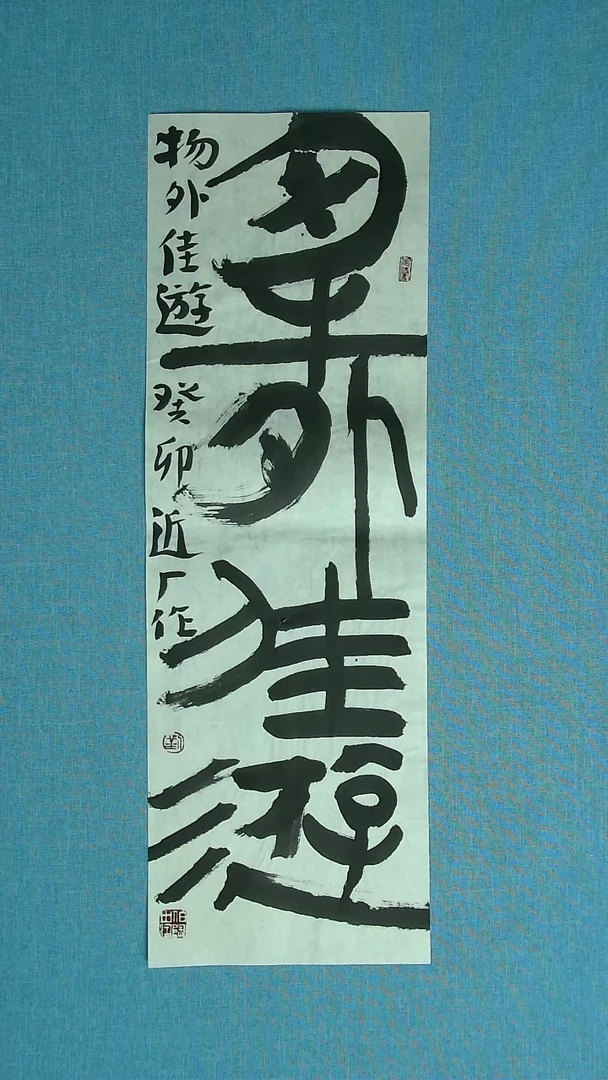 物外佳遊
物外佳遊 癸卯 近厂作